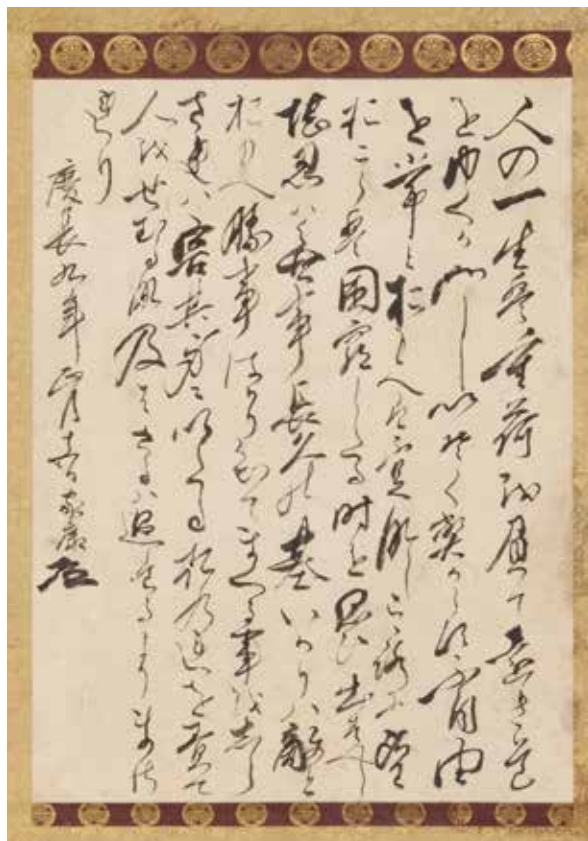 人の一生は重荷を負て遠き道
をゆくかことしいそくへからす不自由
を常とおもへは不足なしこゝろに望
おこらは困窮したる時を思ひ出すへし
堪忍ハ無事長久の基いかりハ敵と
おもへ勝事はかり知てまくる事をしら
されハ害其身にいたるおのれを責て
人をせむるな及はさるハ過たるよりまさ
れり
慶長九年正月十五日 家康